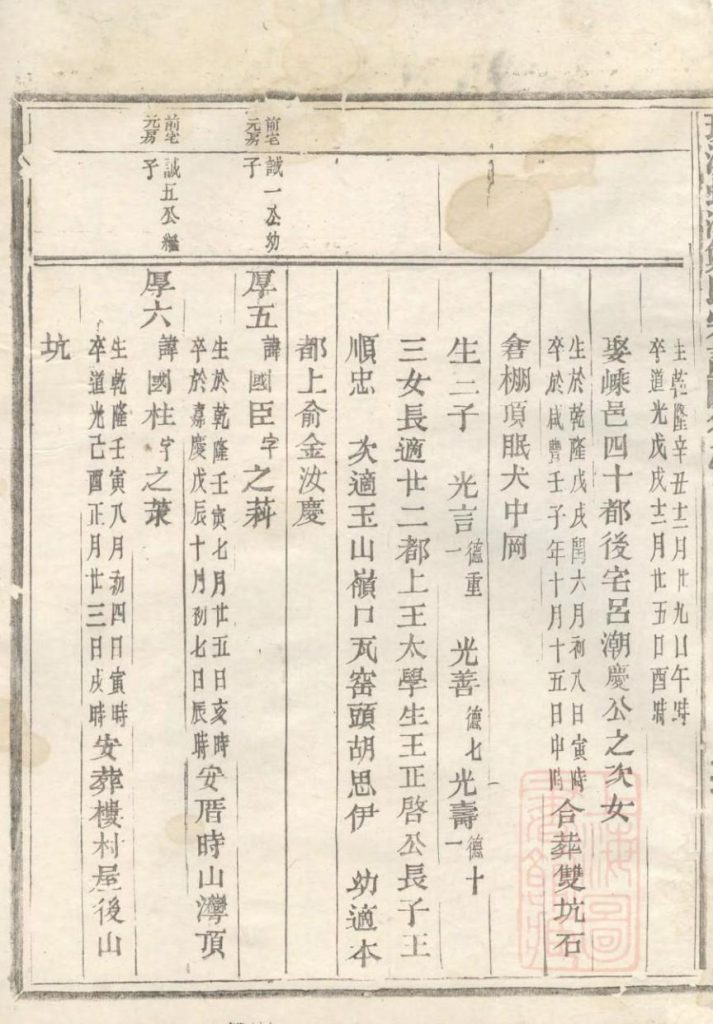 生乾隆辛丑十二月廿九日午時
卒道光戊戌十二月廿五日酉時
娶嵊邑四十都後宅呂潮慶公之次女
生於乾隆戊戌閏六月初八日寅時
卒於咸豐壬子年十月十五日申時
合葬雙坑石
倉棚頂眠犬中岡
生二子 光言德重一 光善德七一 光壽德十一
三女長適廿二都上王太學生王正啓公長子王
順忠 次適玉山嶺口瓦窰頭胡思伊 幼適本
都上俞金汝慶
前宅元房
誠一公幼子
厚五
諱國臣字之莉
生於乾隆壬寅七月廿五日亥時
卒於嘉慶戊辰十月初七日辰時
安厝時山灣頂
前宅元房
誠五公繼子
厚六
諱國柱字之萊
生乾隆壬寅八月初四日寅時
卒道光己酉正月廿三日戌時
安葬樓村屋後山
坑